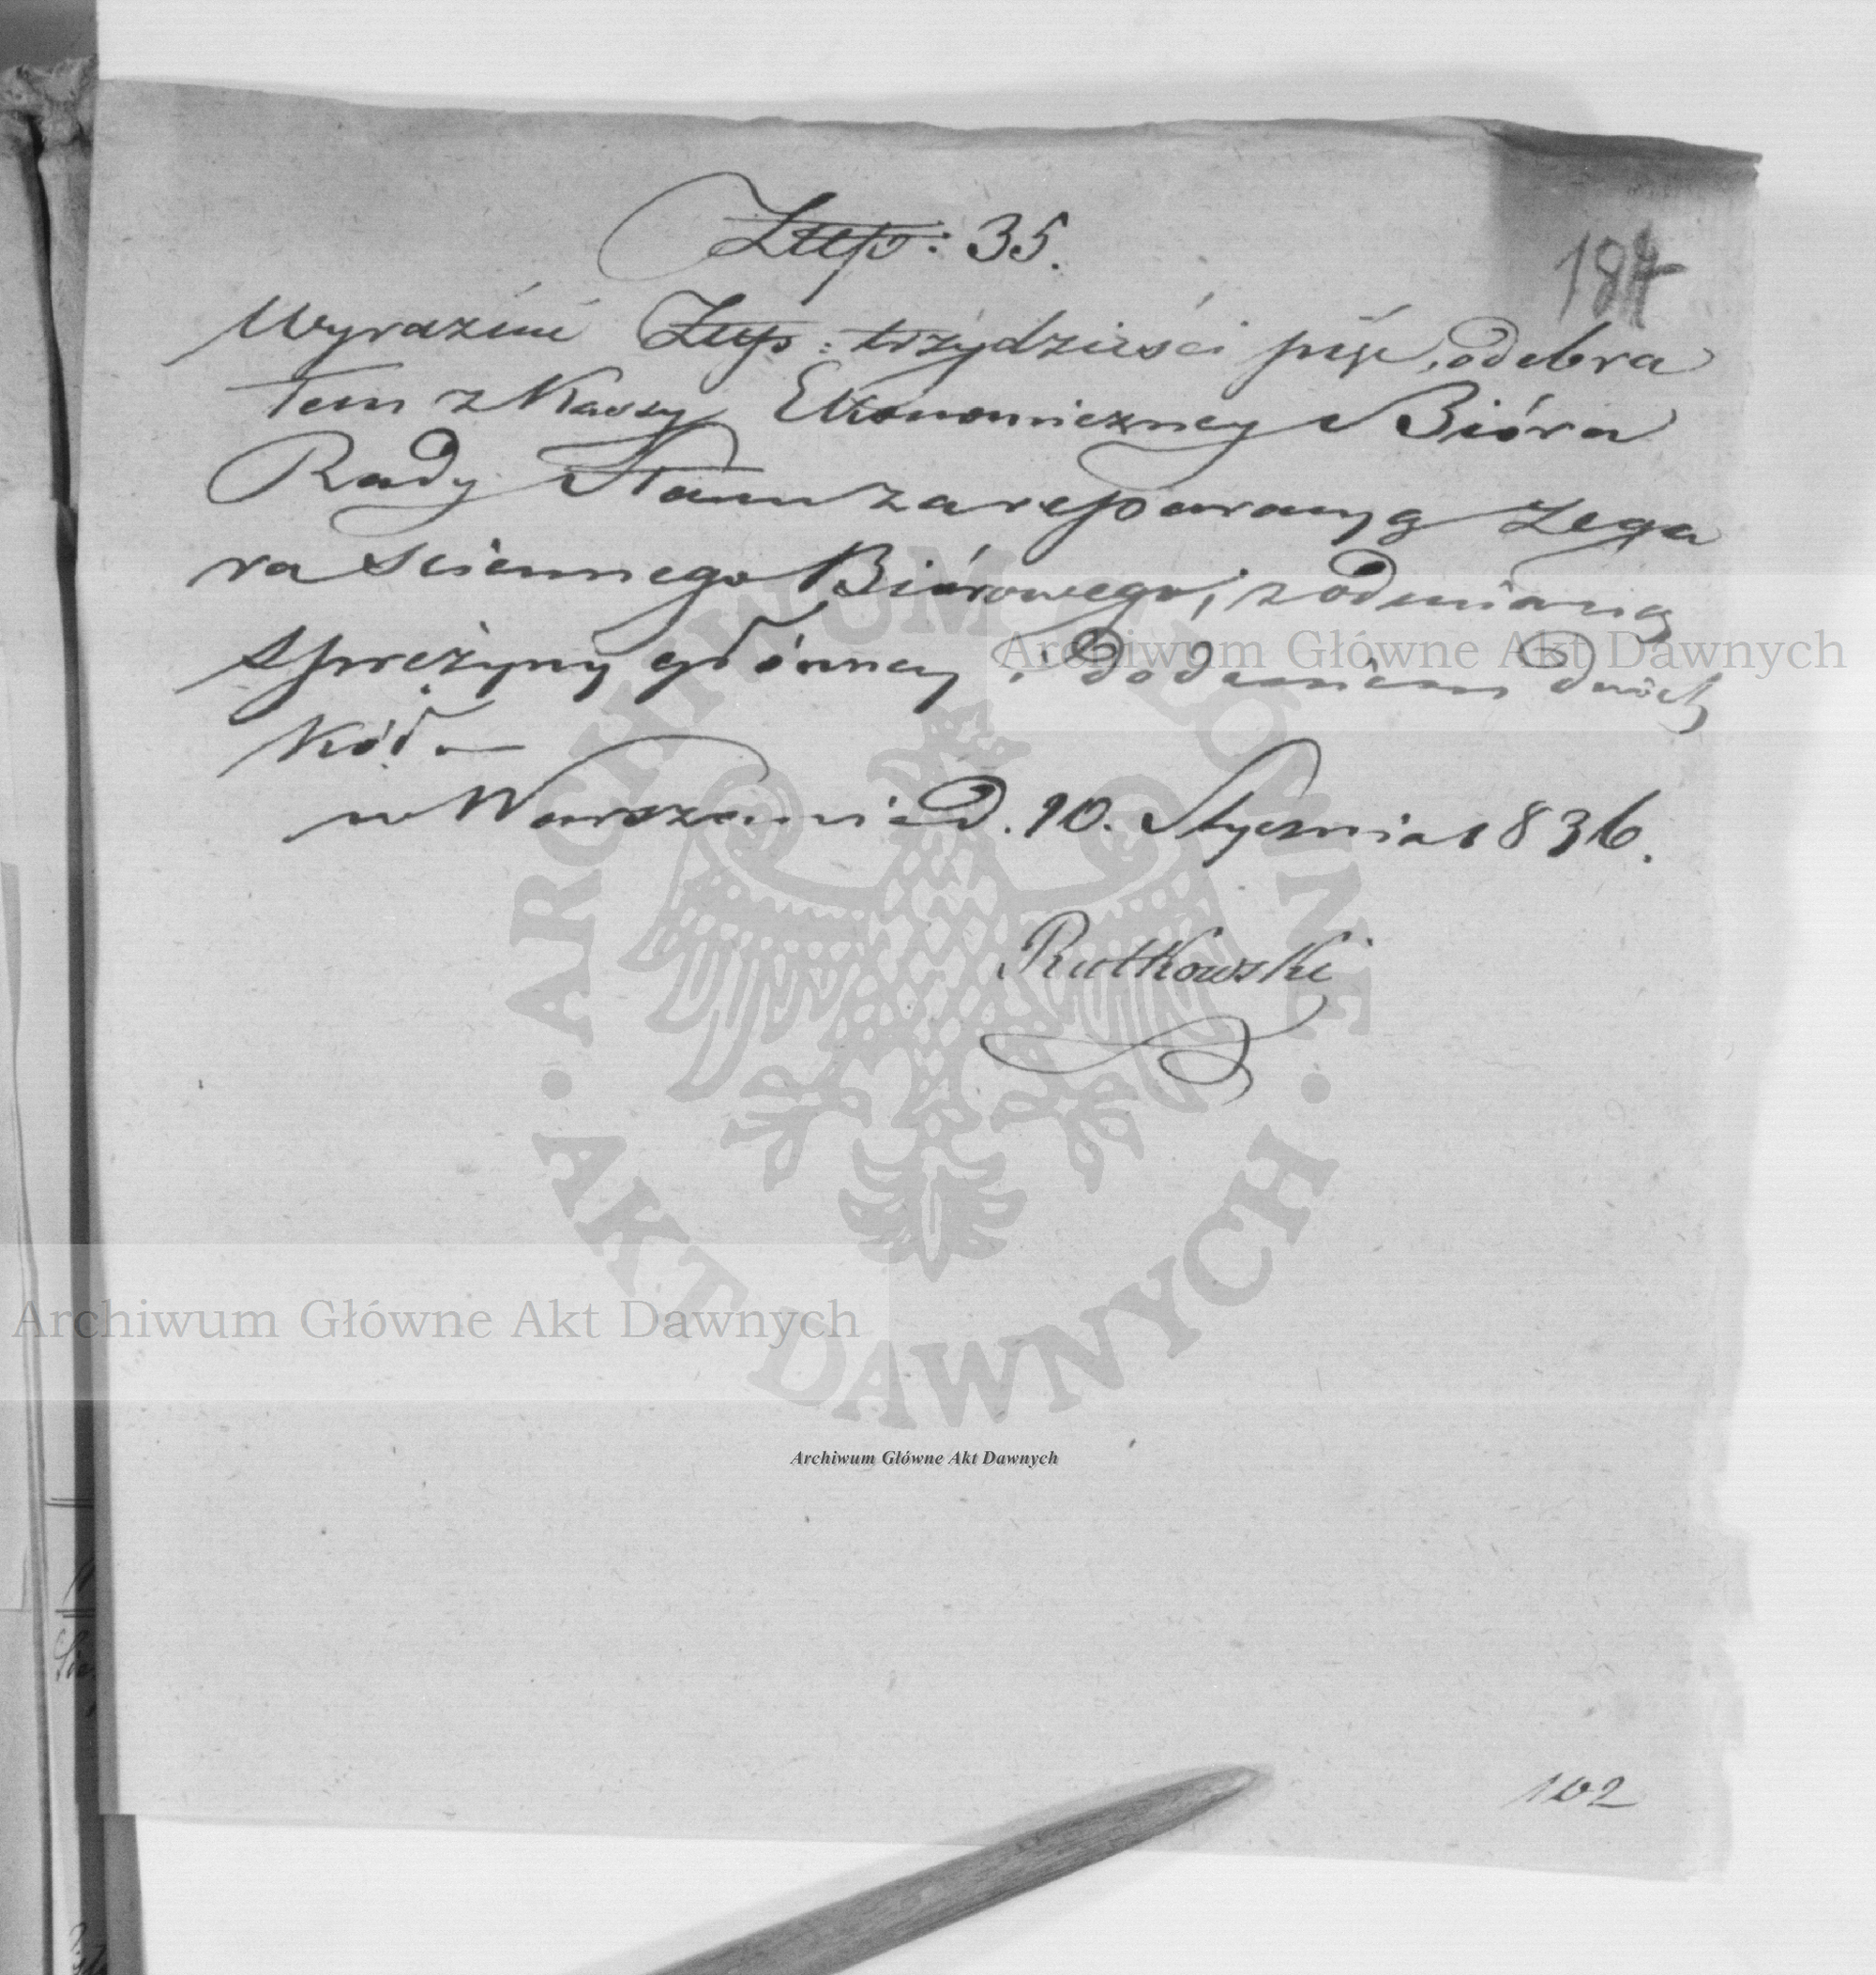 Złtp: 35.
184
Wyraźnie Złtp: trzydzieści pięć, odebra
łem z Kassy Ekonomiczney Bióra
Rady Stanu za reparacyą Zega
ra sciennego Biórowego, z odmianą
sprężyny główney i dodaniem dwóch
Kół. —
w Warszawie d. 10. Stycznia 1836.
Rutkowski
102
ARCHIWUM GŁÓWNE
AKT DAWNYCH
Archiwum Główne Akt Dawnych
Archiwum Główne Akt Dawnych
Archiwum Główne Akt Dawnych